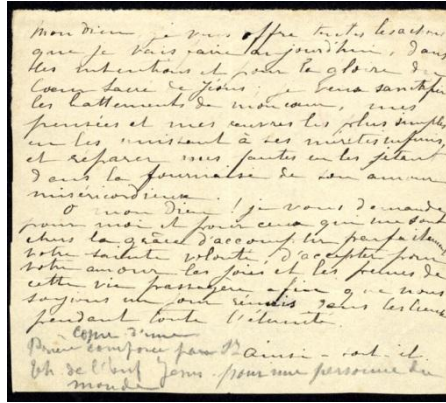 mon Dieu, je vous offre toutes les actions
que je vais faire aujourd'hui, dans
les intentions et pour la gloire du
Coeur Sacré de Jésus; je veux sanctifier
les battements de mon coeur, mes
pensées et mes œuvres les plus simples
en les unissant à ses mérites infinis,
et réparer mes fautes en les jetant
dans la fournaise de son amour
miséricordieux.
O mon Dieu! je vous demande
pour moi et pour ceux qui me sont
chers la grâce d'accomplir parfaitement
votre sainte volonté, d'accepter pour
votre amour les joies et les peines de
cette vie passagère afin que nous
soyons un jour réunis dans les cieux
pendant toute l'éternité.
Ainsi-soit-il.
Copie d'une
Prière composée par
Th. de l'Enf Jésus pour une personne du
monde